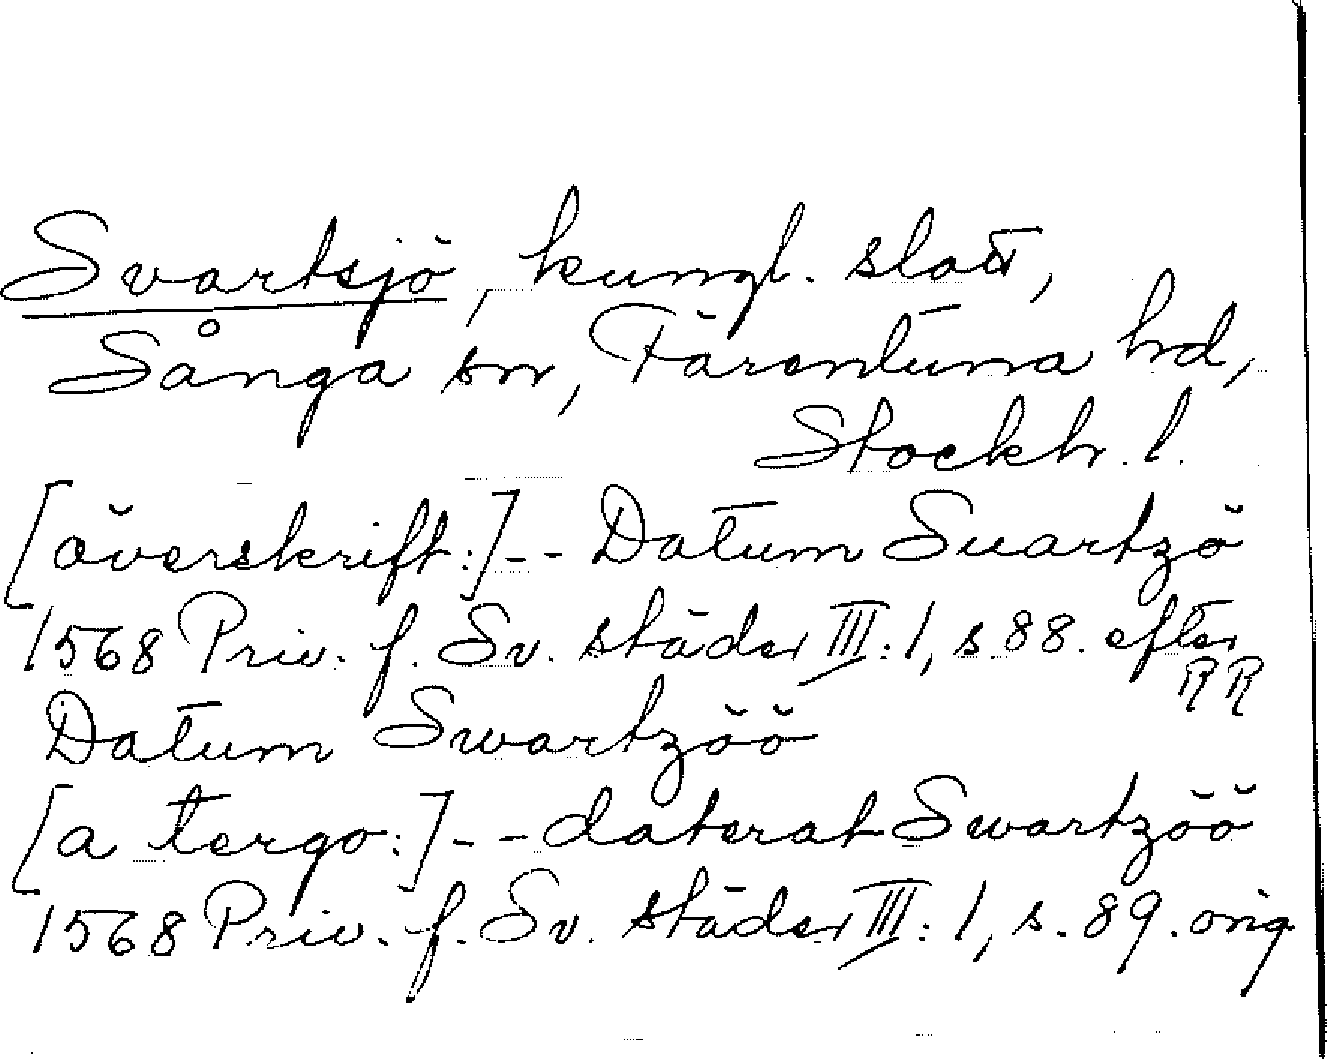 Svartsjö, kungl. slott,
Sånga sn, Färentuna hd,
Stockh. l.
[överskrift:]-- Datum Suartzö
1568 Priv. f. Sv. städer III:1, s. 88. efter
RR
Datum Swartzöö
[a tergo:]-- daterat Swartzöö
1568 Priv. f. Sv. städer III:1, s. 89. orig